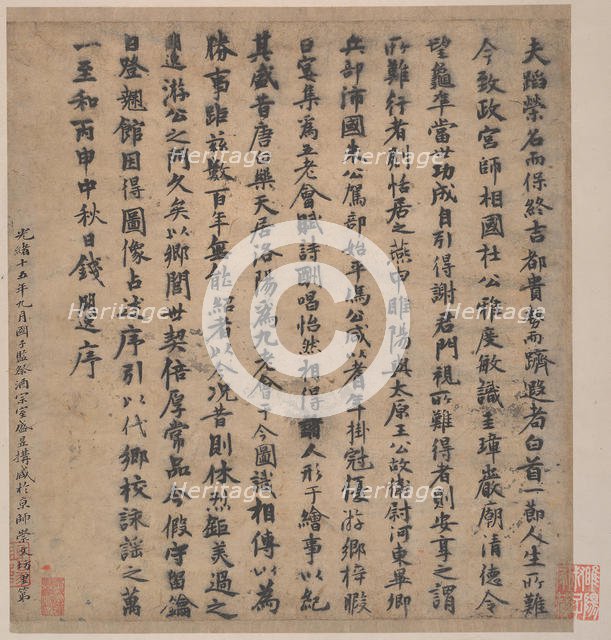 夫蹈榮名而保終吉都貴勢而躋遐耇白首一節人生所難
今致政宮師相國杜公雅度敏識圭璋巖廟清德令
望龜準當世功成自引得謝君門視所難得者則安享之謂
所難行者則恬居之燕申睢陽與太原王公故衛尉河東畢卿
兵部沛國朱公駕部始平馮公咸以耆年掛冠優游鄉梓暇
日宴集為五老會賦詩酬唱怡然相得 人形于繪事以紀
其盛昔唐白樂天居洛陽為九老會于今圖識相傳以為
勝事距茲數百年無能紹者以今況昔則休烈鉅美過之
明逸游公之門久矣以鄉閭世契倍厚常品今假守留鑰
日登翹館因得圖像占述序引以代鄉校詠謠之萬
一至和丙申中秋日錢明逸序
光緒十五年九月國子監祭酒宗室盛昱搆咸於京師崇文坊里第
Heritage
Heritage
Heritage
Heritage
Heritage
Heritage
Heritage
Heritage
Heritage
Heritage
Heritage
C